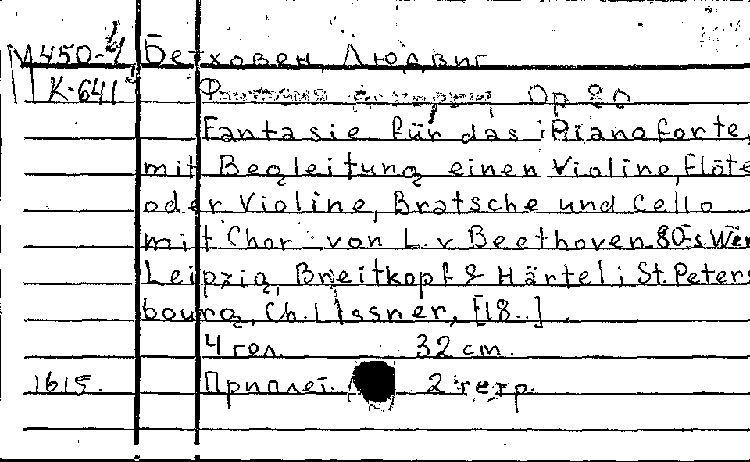 М450-4 Бетховен, Людвиг
К-641 Op 80
Fantasie für das Pianoforte,
mit Begleitung einen Violine, Flöte
oder Violine, Bratsche und Cello
mit Chor von L. v Beethoven 80-s Wer
Leipzig, Breitkopf & Härtel; St. Peters
bourg, Ch. Lissner, [18..]
4 гол. 32 cm.
1615. Приплет. 2 тетр.